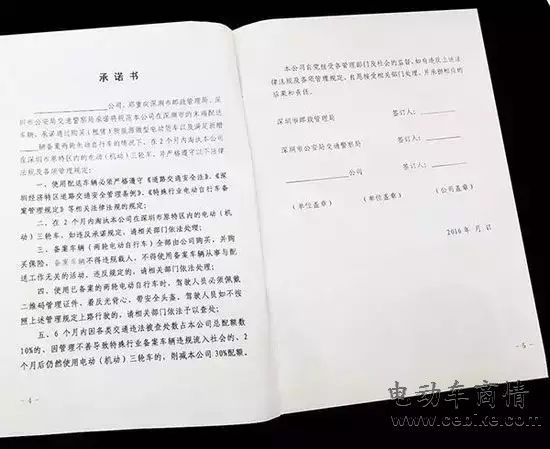 承诺书
公司，郑重向深圳市邮政管理局、深
圳市公安局交通警察局承诺将规范本公司在深圳市的末端配送
车辆，承诺通过购买（租赁）新能源微型电动货车以及满足新增
辆备案两轮电动自行车的情况下，在 2 个月内淘汰本公司
在深圳市原特区内的电动（机动）三轮车，并严格遵守以下法律
法规及各项管理规定：
一、使用配送车辆必须严格遵守《道路交通安全法》、《深
圳经济特区道路交通安全管理条例》、《特殊行业电动自行车备
案管理规定》等相关法律法规的规定；
二、在 2 个月内淘汰本公司在深圳市原特区内的电动（机
动）三轮车，如违反承诺规定，请相关部门依法处理；
三、备案车辆（两轮电动自行车）全部由公司购买，并购
买保险，备案车辆不得违规载人，不得使用备案车辆从事与配
送工作无关的活动，违反规定的，请相关部门依法处理；
四、使用已备案的两轮电动自行车时，驾驶人员必须佩戴
二维码管理证件、着反光背心、带安全头盔，驾驶人员如不按
照上述管理规定上路行驶的，请相关部门依法予以查处；
五、6 个月内因各类交通违法被查处数占本公司总配额数
10%的、因管理不善导致特殊行业备案车辆违规流入社会的、2
个月后仍然使用电动（机动）三轮车的，削减本公司 30%配额。
- 4 -
本公司自觉接受各管理部门及社会的监督，如有违反上述法
律法规及各项管理规定，自愿接受相关部门处理，并承担相应的
后果和责任。
深圳市邮政管理局 签订人：
深圳市公安局交通警察局 签订人：
公司 签订人：
（单位盖章） （单位盖章） （公司盖章）
2016 年 月 日
- 5 -
电动车商情
www.cebike.com